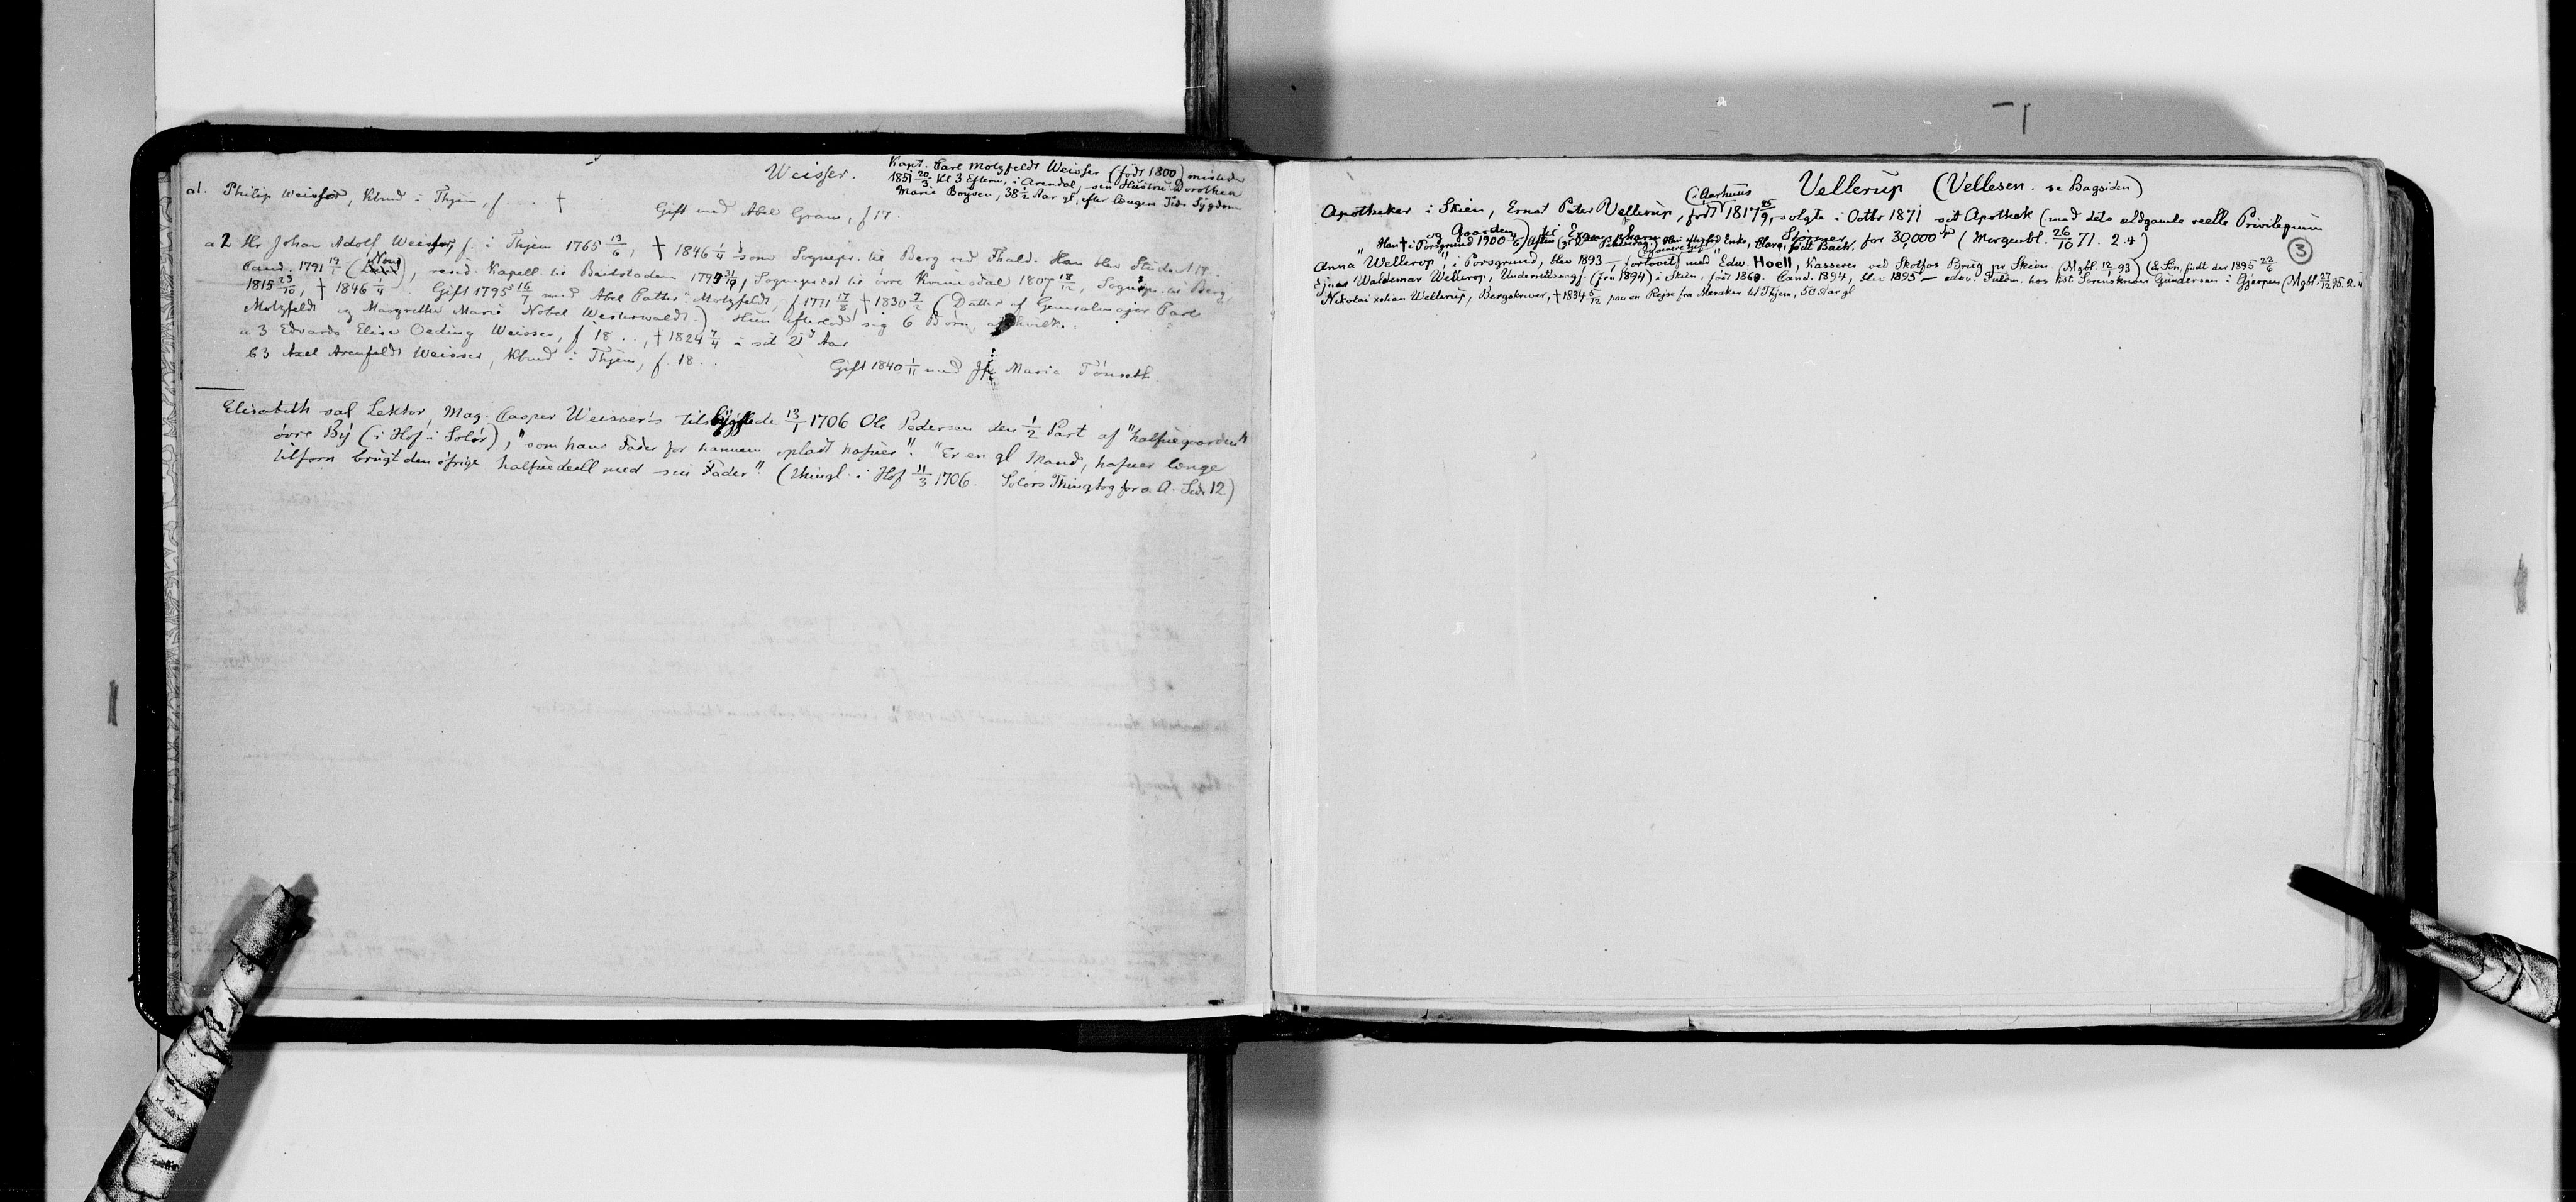 Weisser.
Kapt. Carl Motzfeldt Weisser (født 1800) mistede
1851 20/3 Kl 3 Efterm, i Arendal, sin Hustru Dorothea
Marie Boysen, 38 1/2 Aar gl. efter længere Tids Sygdom
a1. Philip Weisser, Kbmd i Thjem, f. . . †
Gift med Abel Gram, f 17 .
a 2 Hr Johan Adolf Weisser, f. i Thjem 1765 13/6, † 1846 1/4 som Sognepr. til Berg ved Fhald. Han blev Student 17 .
Cand. 1791 (Non), resid. Kapell. til Beitstaden 1795, Sognepræst til øvre Kvinesdal 1807 18/12, Sognepr. til Berg
1815 23/10, † 1846 1/4. Gift 1795 16/7 med Abel Cathr. Motzfeldt, f. 1771 17/8 † 1830 9/2 (Datter af Generalmajor Carl
Motzfeldt og Margrethe Marie Nobel Westerwaldt.) Hun efterlod sig 6 Børn, af hvilke:
a 3 Edvarda Elise Oeding Weisser, f 18 . . , † 1824 7/4 i sit 21d Aar
b3 Axel Arenfeldt Weisser, Kbmd i Thjem, f. 18 . .
Gift 1840 1/11 med Jfr Maria Tønseth
Elisabeth sal Lektor, Mag. Casper Weisser's tilbygslede 13/1 1706 Ole Pedersen den 1/2 Part af "halfuegaarden
øvre By (i Hof i Solør), "som hans Fader for hannem opladt hafuer". "Er en gl Mand, hafuer længe
tilforn brugt den øfrige halfuedeell med sin Fader". (Thingl. i Hof 11/3 1706. Solørs Thingbog for s. A. Side 12)
Vellerup (Vellesen. se Bagsiden)
(i Aarhuus
Apotheker i Skien, Ernst Peter Vellerup, født 1817 25/9, solgte i Octbr 1871 sit Apothek (med dets ældgamle reelle Privilegium
og Gaarden) til Exam. pharm. Stinner for 30,000 Sp (Morgenbl. 26/10 71. 2.4)
Han † i Porsgrund 1900 Aften efterlod Enke, Clara, født Bach.
③
"Anna Wellerup", i Porsgrund, blev 1893 — forlovet (og senere gift) med "Edw. Hoell, Kasserer ved Skotfos Brug pr Skien. (Mgbl. 12/1 93) (E Søn, født der 1895 22/6
Ejnar Waldemar Wellerup, Undersaksøg. (fra 1894) i Skien, født 1869. Cand. 1894, blev 1895 — edsv. Fuldm. hos kst Sorenskriver Gundersen i Gjerpen (Mgbl. 27/12 95. 2.4
Nikolai Johan Wellerup, Bergskriver, † 1834 5/12 paa en Rejse fra Meraker til Thjem, 50 Aar gl